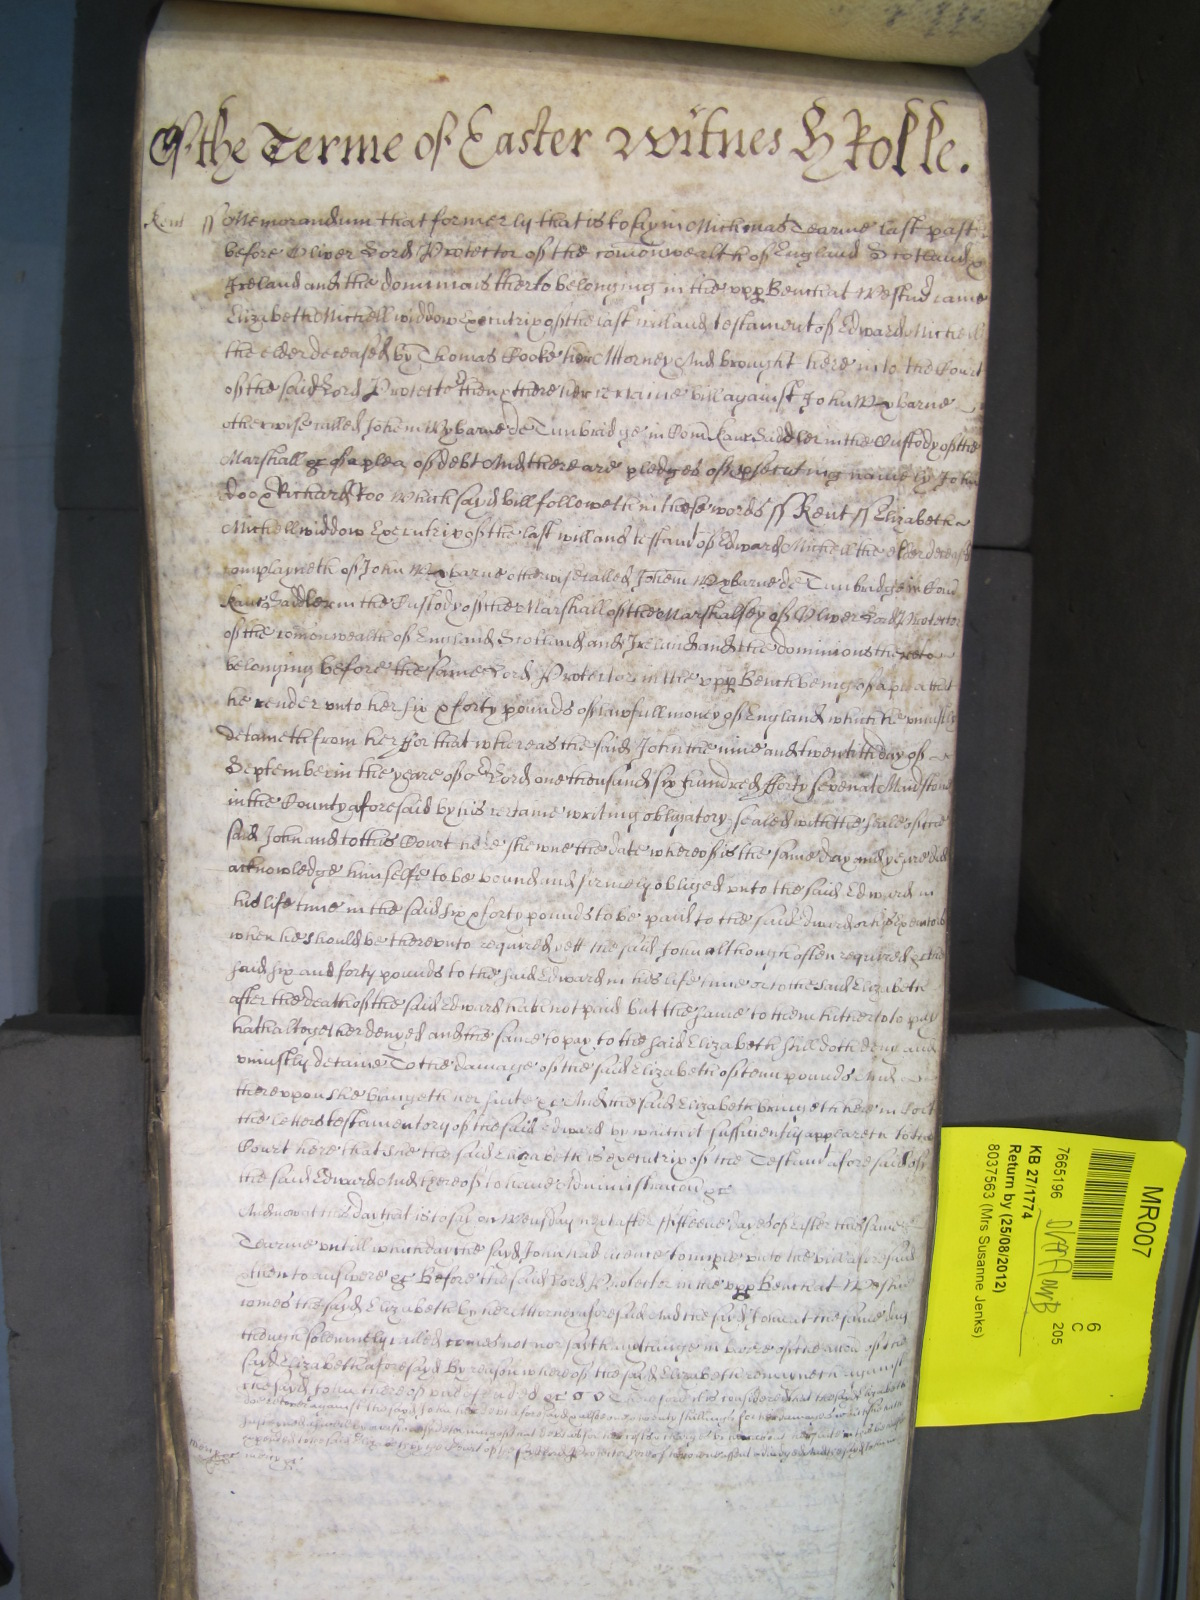 Of the Terme of Easter Witnes H Rolle.
Kent ss Memorandum that formerly that is to say in Michmas Tearme last past
before Oliver Lord Protector of the comonwealth of England Scotland &
Ireland and the dominions therto belonging in the upp Bench at Westmr came
Elizabeth Michell widdow Executrix of the last will and testament of Edward Michell
the elder deceased by Thomas Cooke her Attorney And brought here into the Court
of the said Lord Protector then & there her certaine bill against John Wybarne
otherwise called Johem Wybarne de Tunbridge in Com Kanc Saddler in the Custody of the
Marshall &c of a plea of debt And there are pledges of psecuting namely John
Doo & Richard Roo Which said bill followeth in these words ss Kent ss Elizabeth
Michell widdow Executrix of the last will and testamt of Edward Michell the elder deceased
complayneth of John Wybarne otherwise called Johem Wybarne de Tunbridge in Com
Kanc Saddler in the Custody of the Marshall of the Marshalsey of Oliver Lord Protector
of the comonwealth of England Scotland and Ireland and the dominions thereto
belonging before the same Lord Protector in the upp Bench being of a plea that
he render unto her six & forty pounds of lawfull money of England which he uniustly
detaineth from her ffor that whereas the said John the nine and twentith day of
September in the yeare of or Lord one thousand six hundred fforty seven at Maidstone
in the County aforesaid by his certaine writing obligatory sealed with the seale of the
said John and to this Court here shewne the date whereof is the same day and yeare did
acknowledge himselfe to be bound and firmely obliged unto the said Edward in
his life time in the said six & forty pounds to be paid to the said Edward or his Executors
when he should be thereunto required yett the said John although often required &c the
said six and forty pounds to the said Edward in his life time or to the said Elizabeth
after the death of the said Edward hath not paid but the same to them hitherto to pay
hath altogether denyed and the same to pay to the said Elizabeth still doth deny and
uniustly detaine To the damage of the said Elizabeth of tenn pounds And
thereupon she bringeth her suite &c And the said Elizabeth bringeth here in Cort
the letters testamentory of the said Edward by which it sufficiently appeareth to the
Court here that she the said Elizabeth is executrix of the Testamt aforesaid of
the said Edward And thereof to have Administracon &c
And now at this day that is to say on Wensday next after fifteene dayes of Easter this same
Tearme untill which day the sayd John had licence to imple unto the bill aforesaid
then to answere &c Before the said Lord Protector in the upp Bench at Westmr
comes the sayd Elizabeth by her Attorney aforesaid And the sayd John at the same day
though solemnely called comes not nor saith any thinge in barre of the accon of the
sayd Elizabeth aforesayd By reason whereof the said Elizabeth remayneth against
the sayd John thereof undefended &c Therefore it is considered that the sayd Elizabeth
doe recover against the sayd John her debt aforesaid and alsoe twenty shillings for her damages which she hath
MR007
7665196
205
6
C
KB 27/1774
Return by (25/08/2012)
8037563 (Mrs Susanne Jenks)